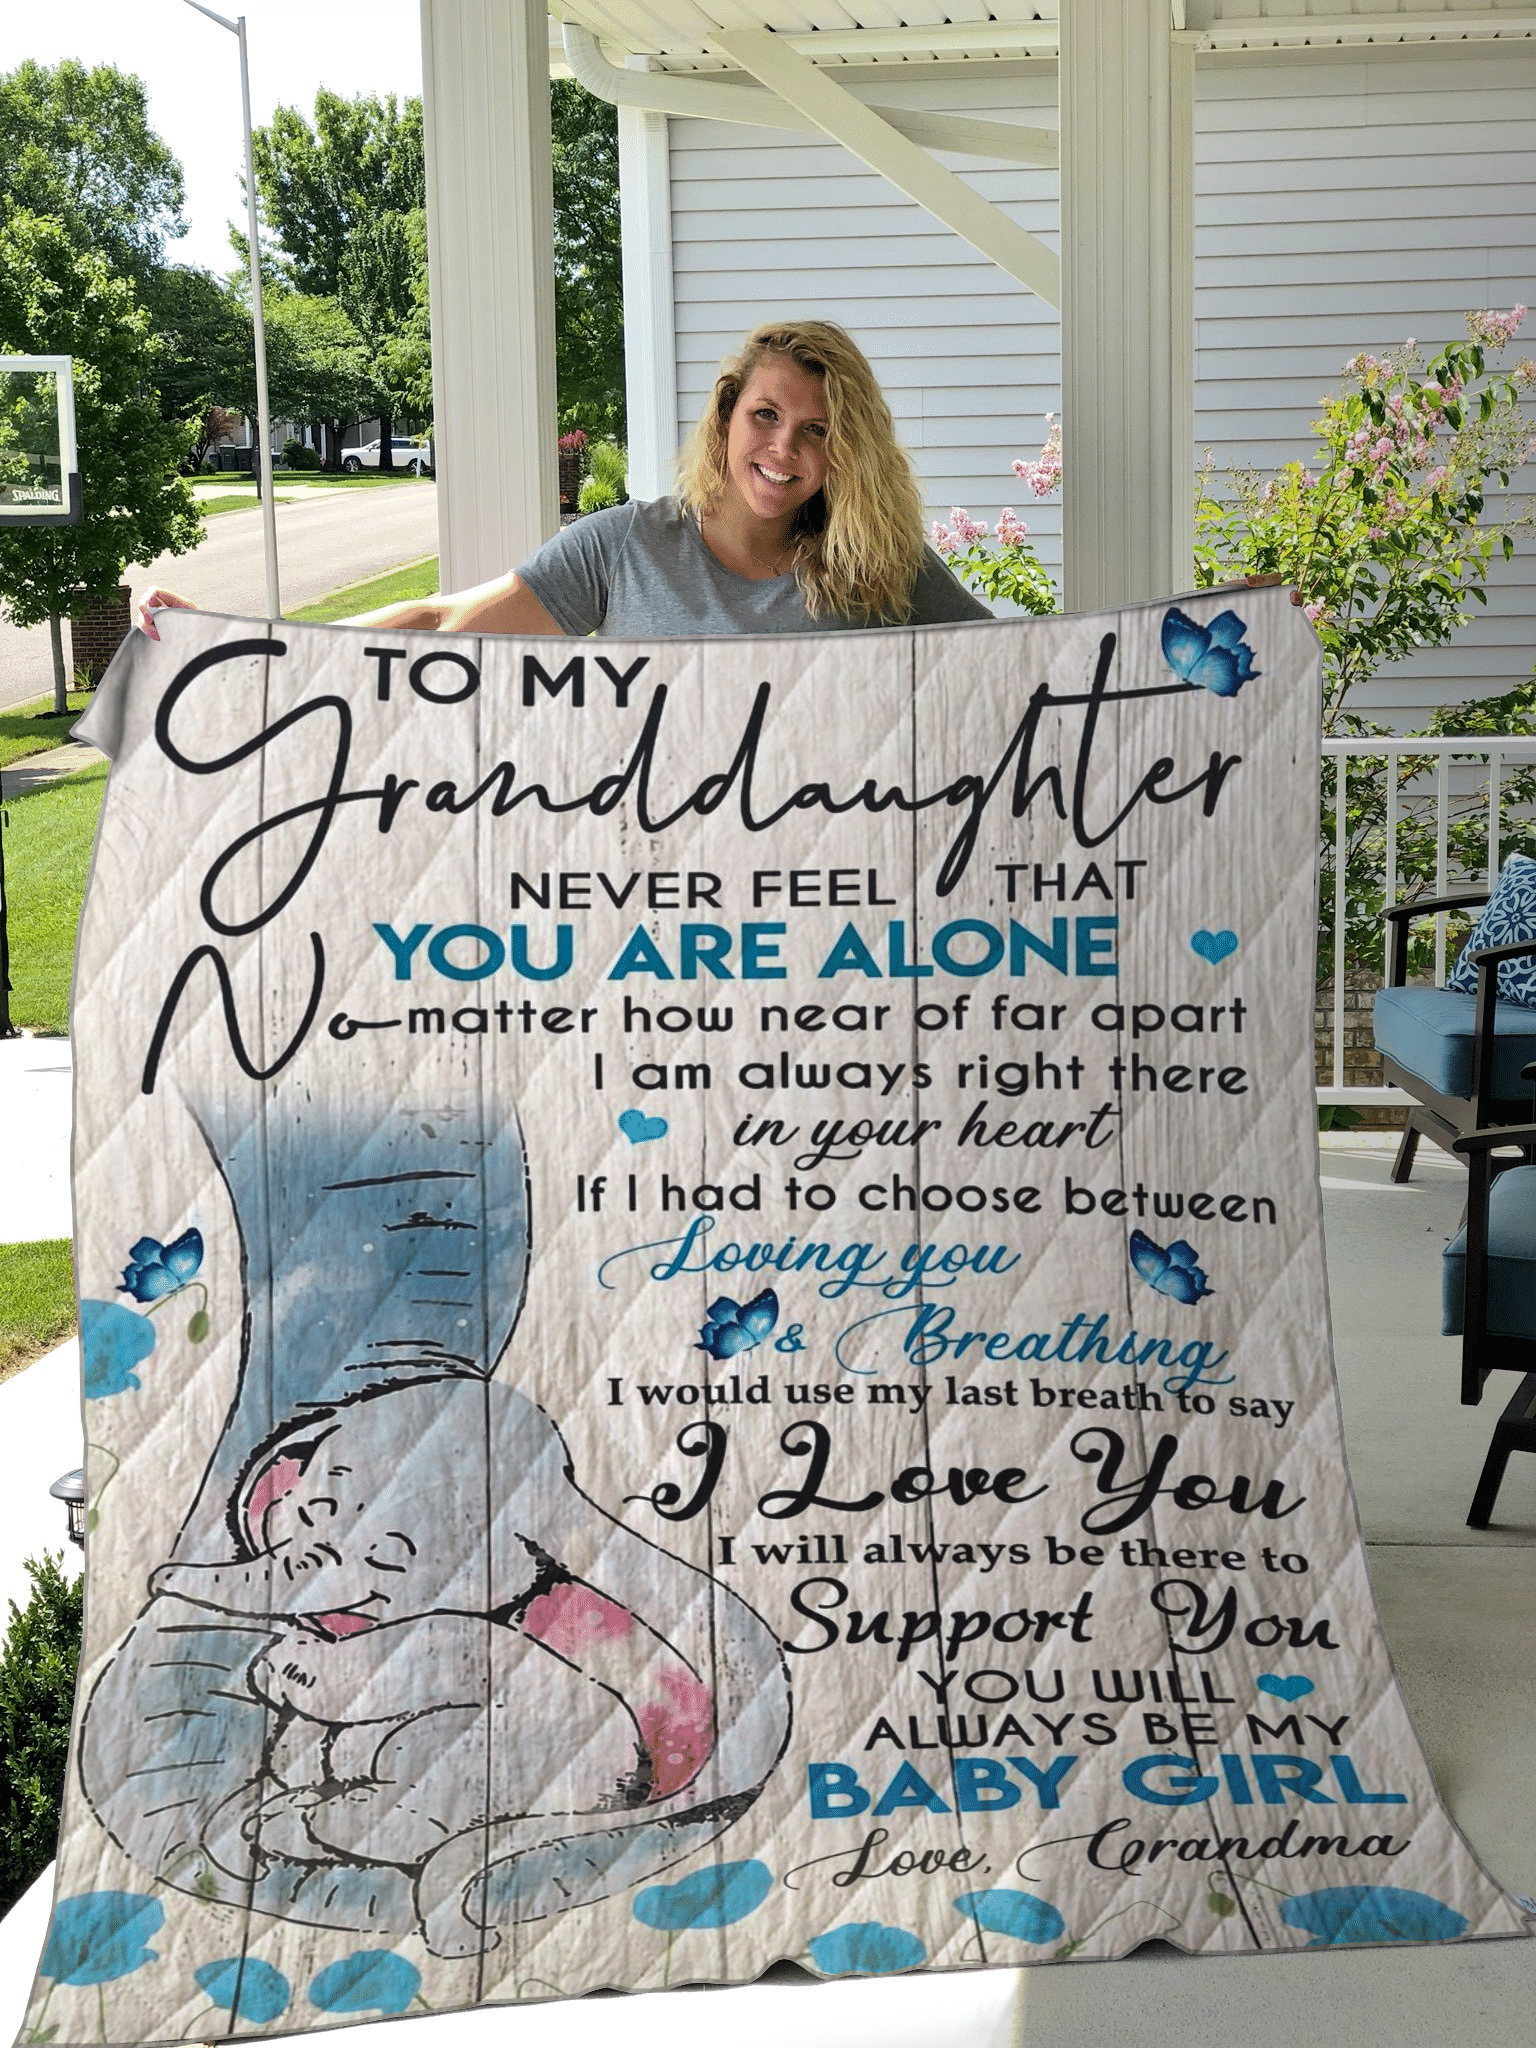 SPALDING
TO MY
Granddaughter
NEVER FEEL THAT
YOU ARE ALONE
No matter how near of far apart
I am always right there
in your heart
If I had to choose between
Loving you
& Breathing
I would use my last breath to say
I Love You
I will always be there to
Support You
YOU WILL
ALWAYS BE MY
BABY GIRL
Love, Grandma